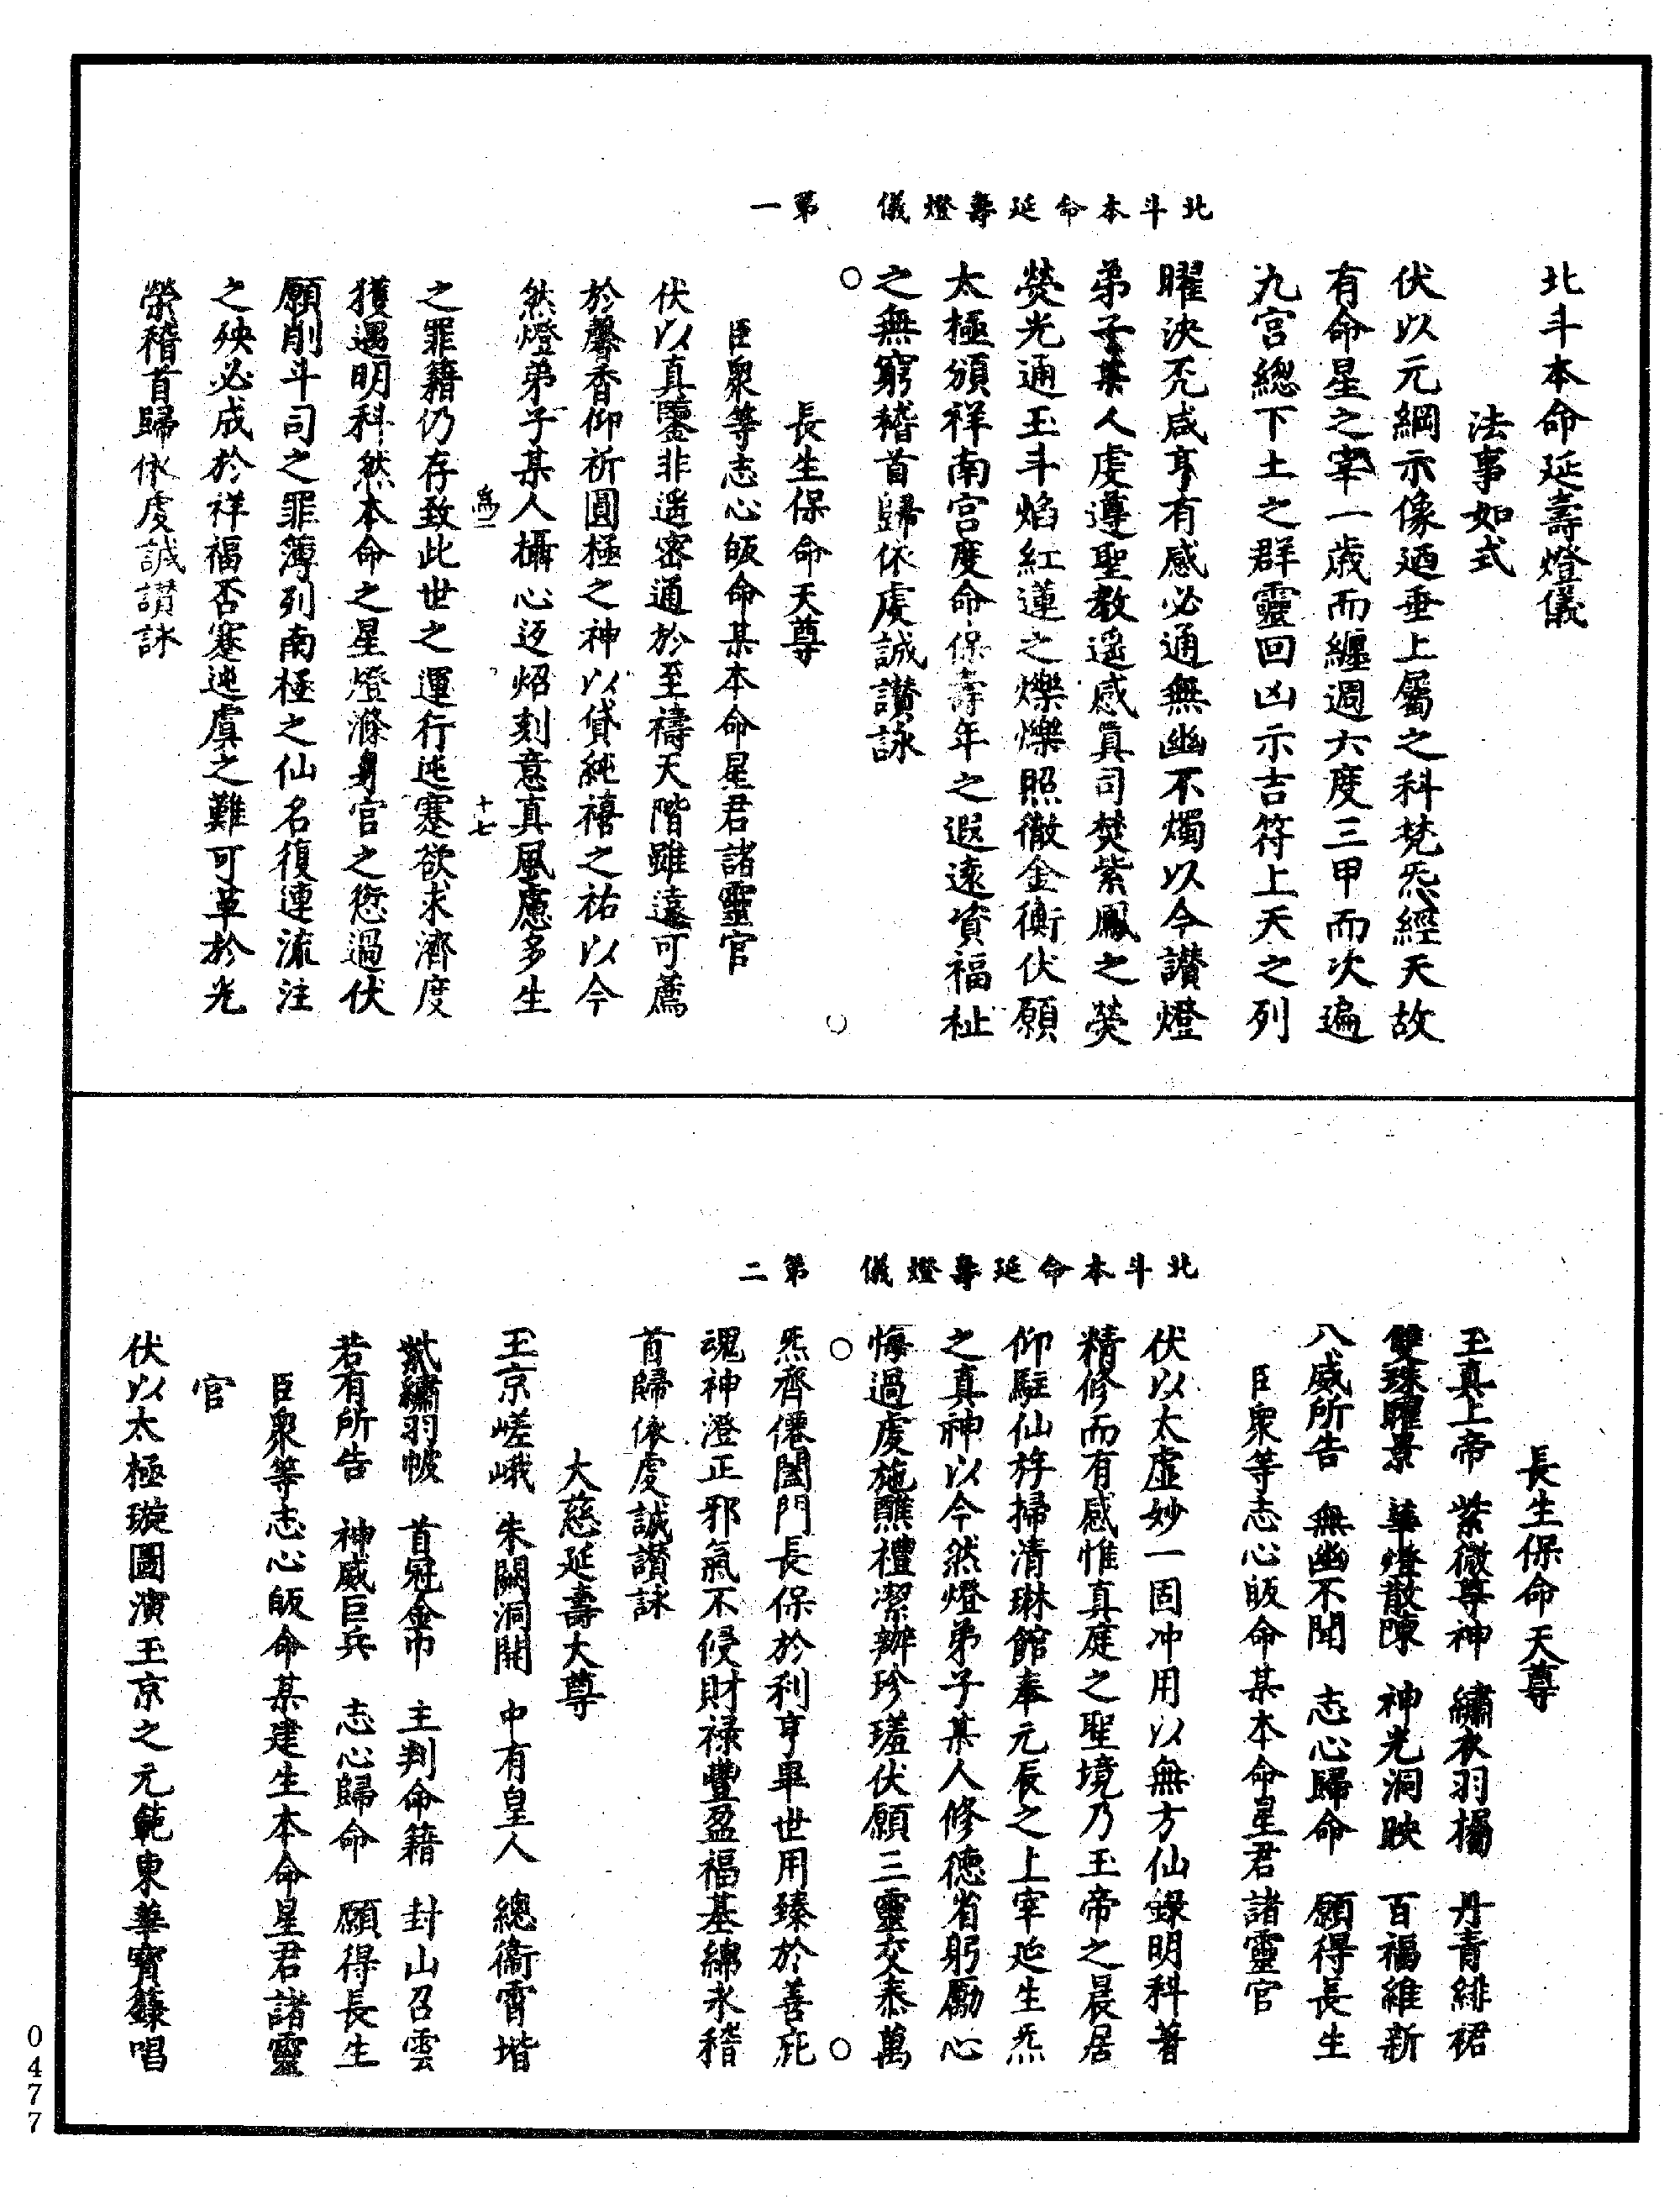 北斗本命延壽燈儀
法事如式
伏以元綱示像迺垂上屬之科梵炁經天故
有命星之宰一歲而纏週六度三甲而次遍
九宮總下土之群靈回凶示吉符上天之列
曜決克咸亨有感必通無幽不燭以今讃燈
弟子某人虔遵聖教遥感真司焚紫鳳之熒
熒光通玉斗焰紅蓮之爍爍照徹金衡伏願
太極頒祥南宮度命保壽年之遐遠資福祉
之無窮稽首歸依虔誠讃詠
北斗本命延壽燈儀 第一
長生保命天尊
臣衆等志心皈命某本命星君諸靈官
伏以真鑒非遥密通於至禱天階雖遠可薦
於馨香仰祈圓極之神以貸純禧之祐以今
然燈弟子某人攝心迓炤刻意真風慮多生
十七
之罪籍仍存致此世之運行迍蹇欲求濟度
獲遇明科然本命之星燈滌身宮之愆過伏
願削斗司之罪簿列南極之仙名復連流注
之殃必成於祥福否蹇迍虞之難可革於光
榮稽首歸依虔誠讃詠
長生保命天尊
玉真上帝 紫微尊神 繡衣羽揚 丹青緋裙
雙珠曜景 華燈散陳 神光洞映 百福維新
八威所告 無幽不聞 志心歸命 願得長生
臣衆等志心皈命某本命星君諸靈官
伏以太虛妙一固冲用以無方仙錄明科著
精修而有感惟真庭之聖境乃玉帝之晨居
仰駐仙斿掃清琳館奉元辰之上宰延生炁
之真神以今然燈弟子某人修德省躬勵心
悔過虔施醮禮潔辦珍瑳伏願三靈交泰萬
北斗本命延壽燈儀 第二
炁齊僊闔門長保於利亨畢世用臻於善庇
魂神澄正邪氣不侵財祿豐盈福基綿永稽
首歸依虔誠讃詠
大慈延壽大尊
玉京嵯峨 朱闕洞開 中有皇人 總衞霄堦
氅繡羽帔 首冠金巾 主判命籍 封山召雲
若有所告 神威巨兵 志心歸命 願得長生
臣衆等志心皈命某建生本命星君諸靈
官
伏以太極璇圖演玉京之元範東華寶籙唱
0477